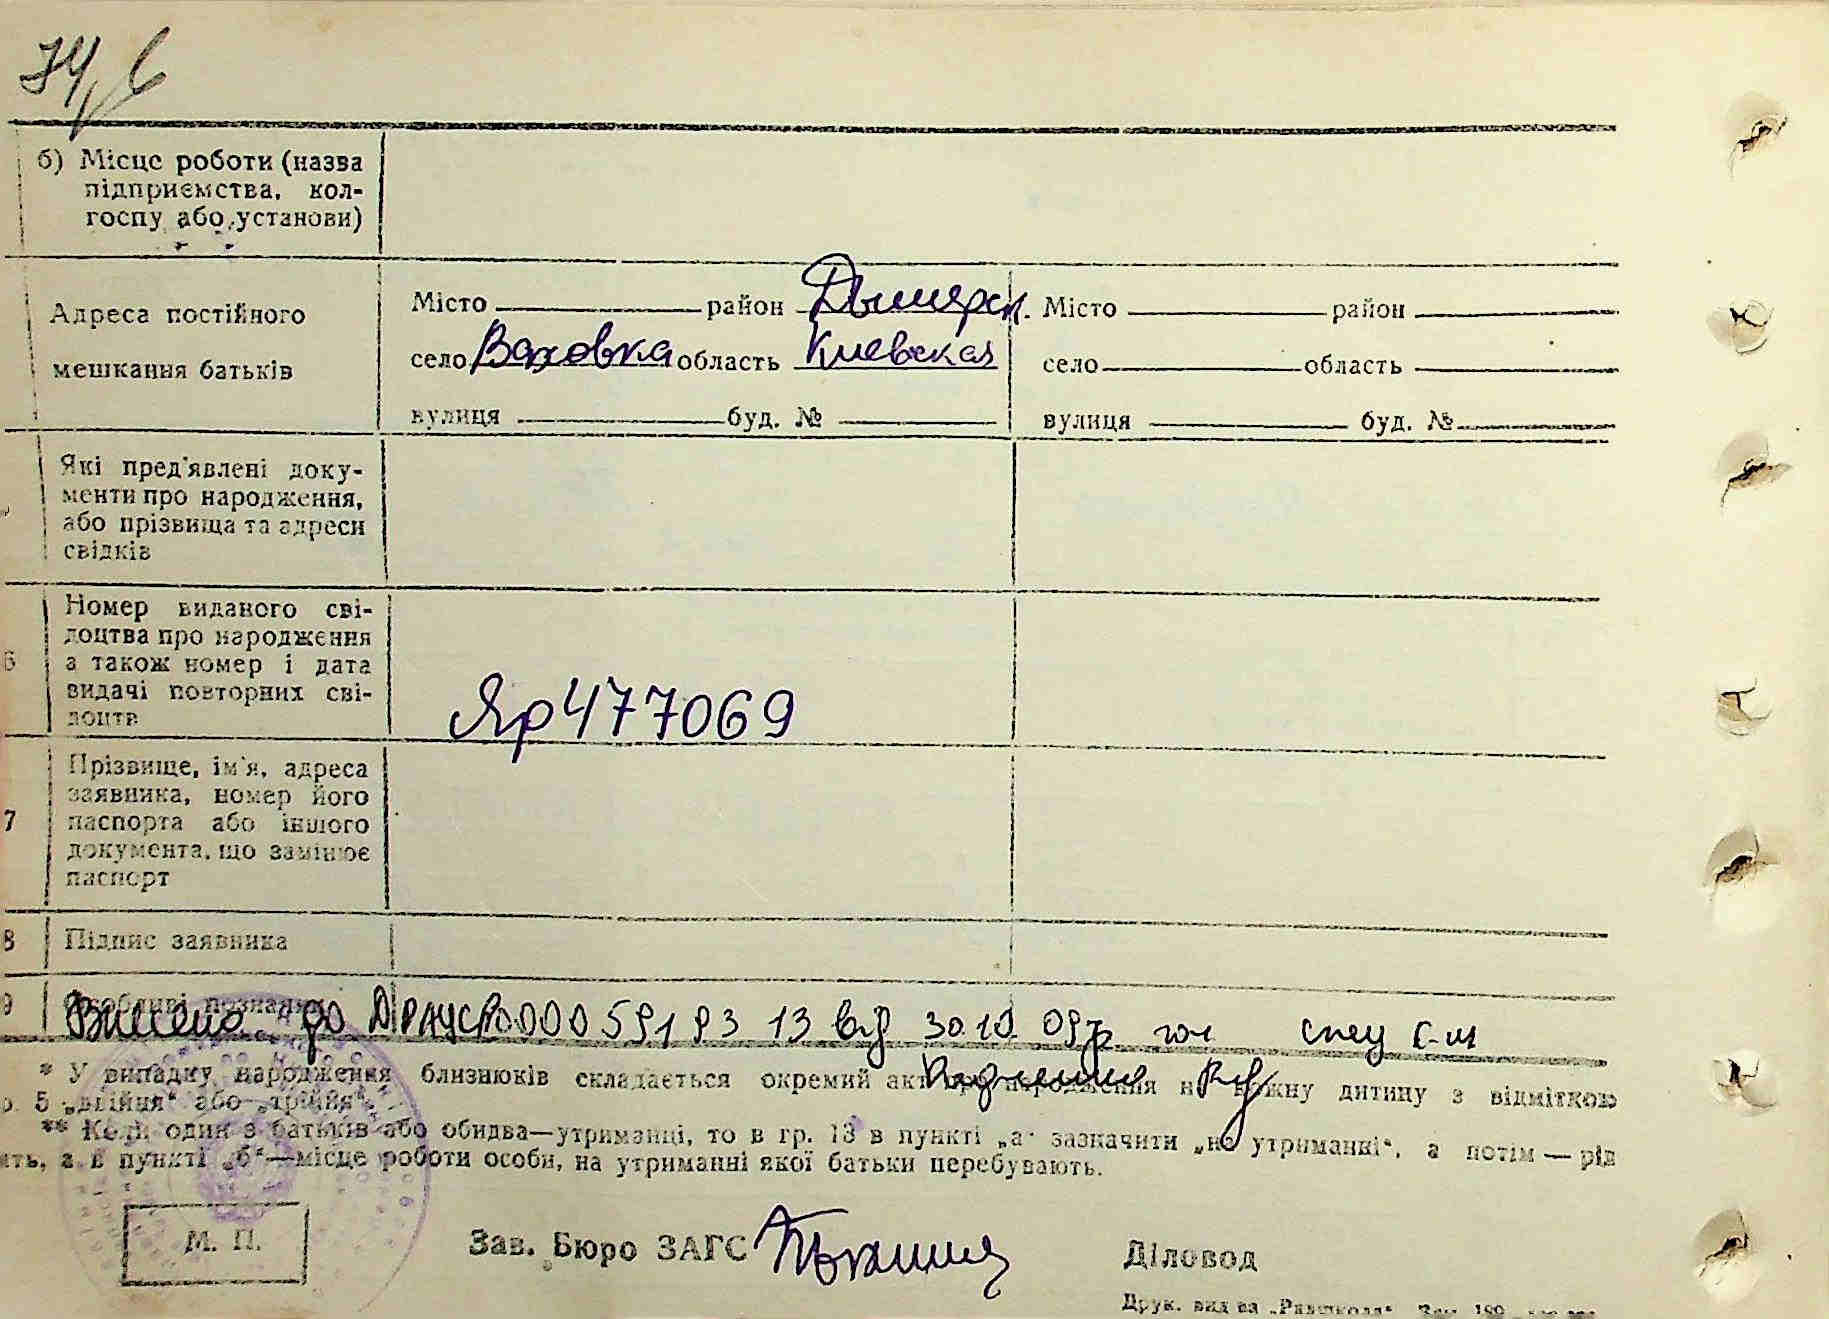 б) Місце роботи (назва
підприємства, кол-
госпу або установи)
Адреса постійного
мешкання батьків
Місто район Дымерск.
село Вахов­ка область Киевская
вулиця буд. №
Місто район
село область
вулиця буд. №
Які пред'явлені доку-
менти про народження,
або прізвища та адреси
свідків
6 Номер виданого сві-
доцтва про народження
а також номер і дата
видачі повторних сві-
доцтв
Яр 477069
7 Прізвище, ім'я, адреса
заявника, номер його
паспорта або іншого
документа, що замінює
паспорт
8 Підпис заявника
9 Особливі позначки
Внесено до ДРАЦС 00059193 13 від 30 10 09р спец
* У випадку народження близнюків складається окремий акт про народження на кожну дитину з відміткою
р. 5 „двійня“ або „трійня“.
** Коли один з батьків або обидва—утриманці, то в гр. 13 в пункті „а“ зазначити „на утриманні“, а потім — рід
ить, а в пункті „б“—місце роботи особи, на утриманні якої батьки перебувають.
М. П.
Зав. Бюро ЗАГС
Діловод
Друк. вид ва „Рад­школа“ Зам. 189